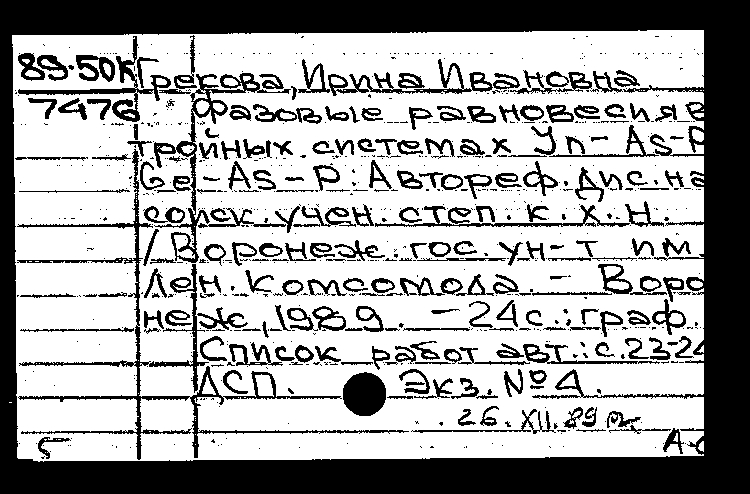 89-50К Грекова, Ирина Ивановна
7476 Фазовые равновесия в
тройных системах Уn-As-P
Ge-As-P: Автореф. дис. на
соиск. учен. степ. к. х. н.
/Воронеж. гос. ун-т им.
Лен. комсомола. - Воро
неж, 1989. - 24 с.: граф.
Список работ авт.: с. 23-24
ДСП. Экз. № 4.
26. XII. 89
5